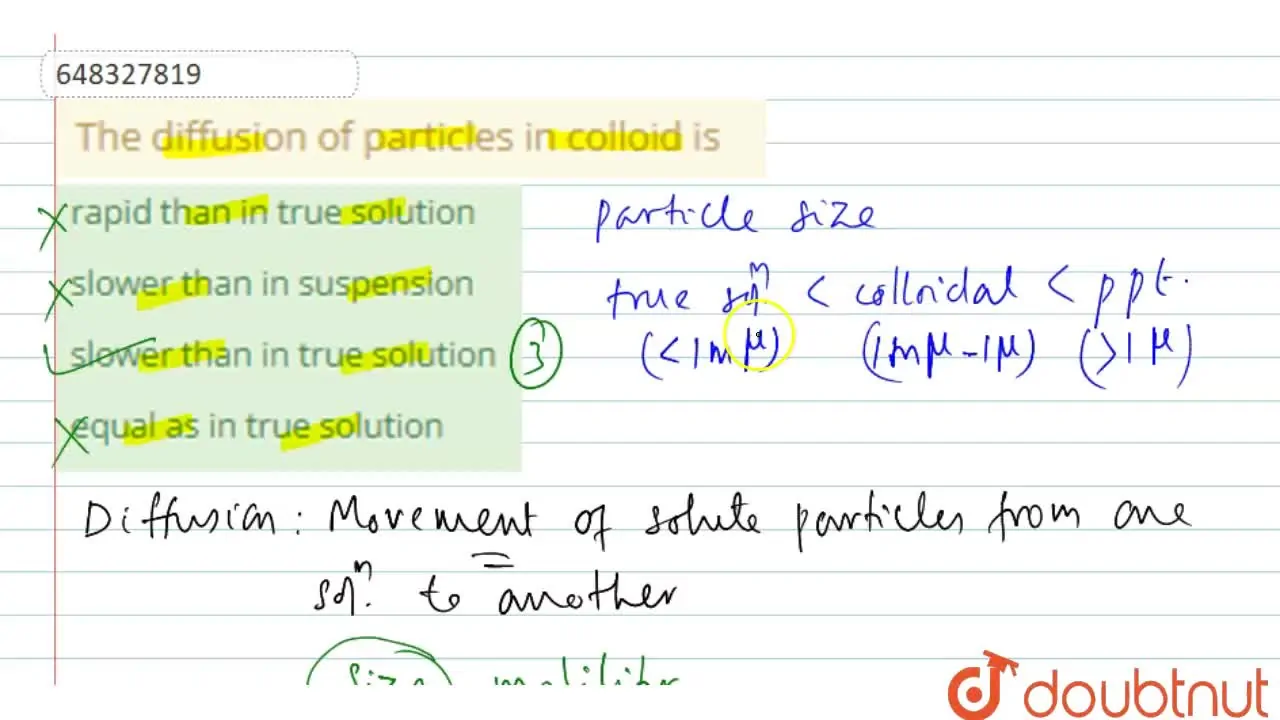 648327819
The diffusion of particles in colloid is
rapid than in true solution
slower than in suspension
slower than in true solution 3
equal as in true solution
particle size
true solⁿ < colloidal < ppt.
(<1mμ) (1mμ-1μ) (>1μ)
Diffusion: Movement of solute particles from one
solⁿ. to another
size
doubtnut